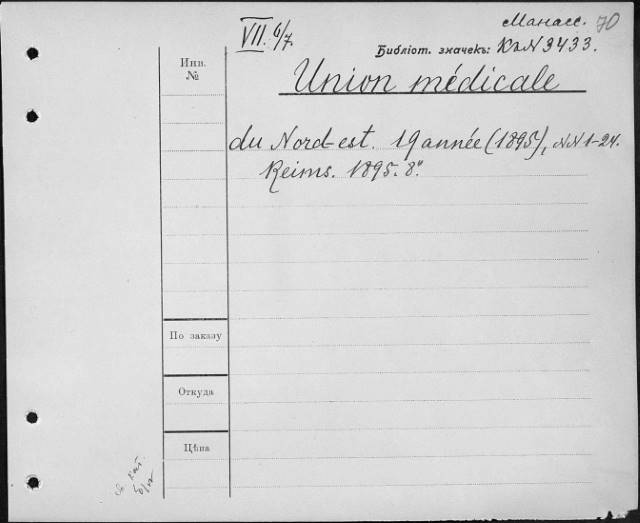 Манасс. 70
VII. 6/7.
Библіот. значекъ: К к N 3433.
Инв. №
Union médicale
du Nord-est. 19 année (1895), NN 1-24.
Reims. 1895. 8°.
По заказу
Откуда
Цѣна